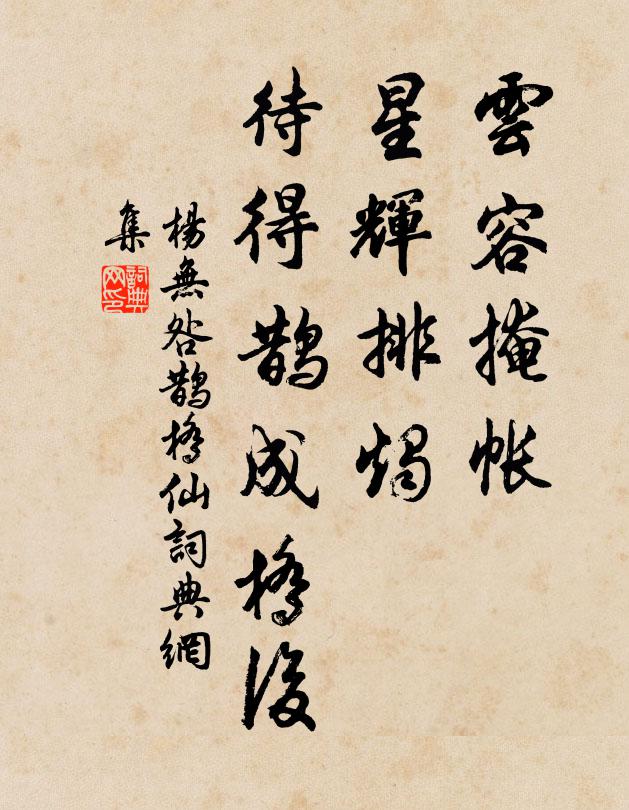 雲容掩帐
星輝排燭
待得鹊成橋後
楊無咎鹊橋仙詞典網
集
詞典网印